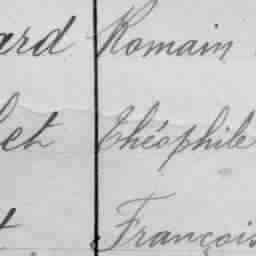 ard Romain
et Théophile
t François